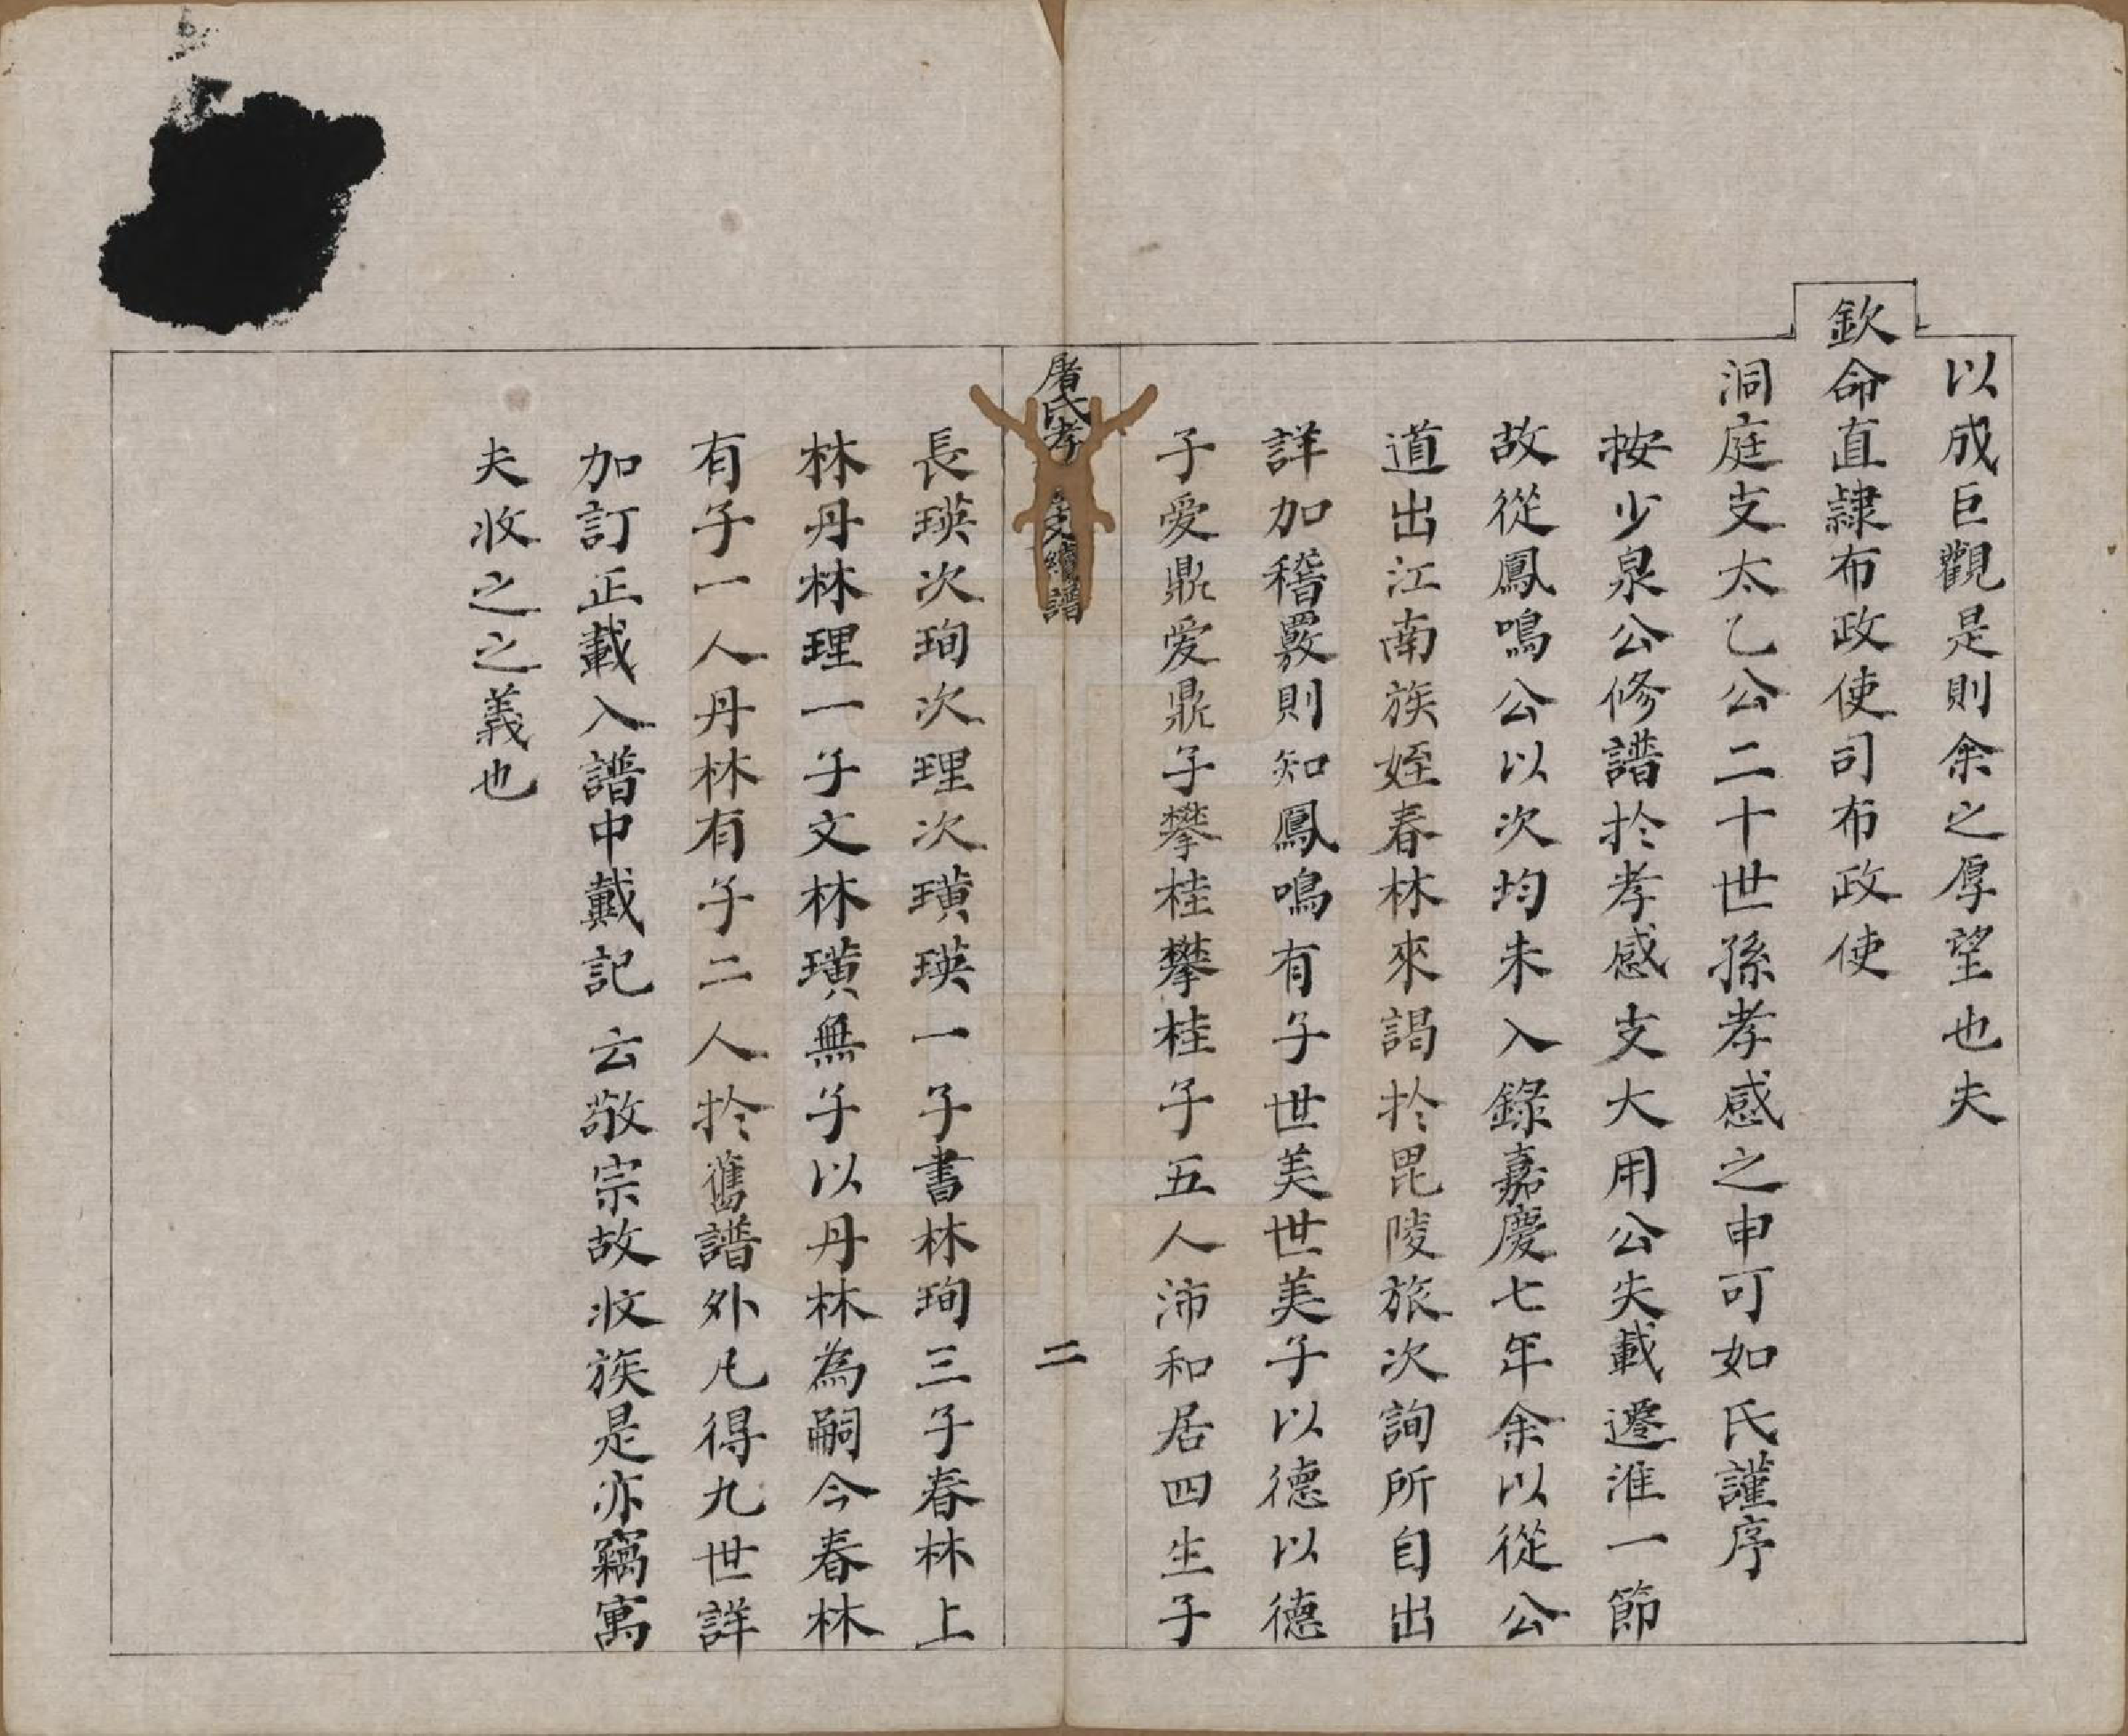 以成巨觀是則余之厚望也夫
欽命直隸布政使司布政使
洞庭支太乙公二十世孫孝感之申可如氏謹序
按少泉公修譜於孝感支大用公失載遷淮一節
故從鳳鳴公以次均未入錄嘉慶七年余以從公
道出江南族姪春林來謁於毘陵旅次詢所自出
詳加稽覈則知鳳鳴有子世美世美子以德以德
子愛鼎愛鼎子攀桂攀桂子五人沛和居四生子
屠氏孝支續譜
二
長瑛次珣次理次璜瑛一子書林珣三子春林上
林丹林理一子文林璜無子以丹林為嗣今春林
有子一人丹林有子二人於舊譜外凡得九世詳
加訂正載入譜中戴記云敬宗故收族是亦竊寓
夫收之之義也